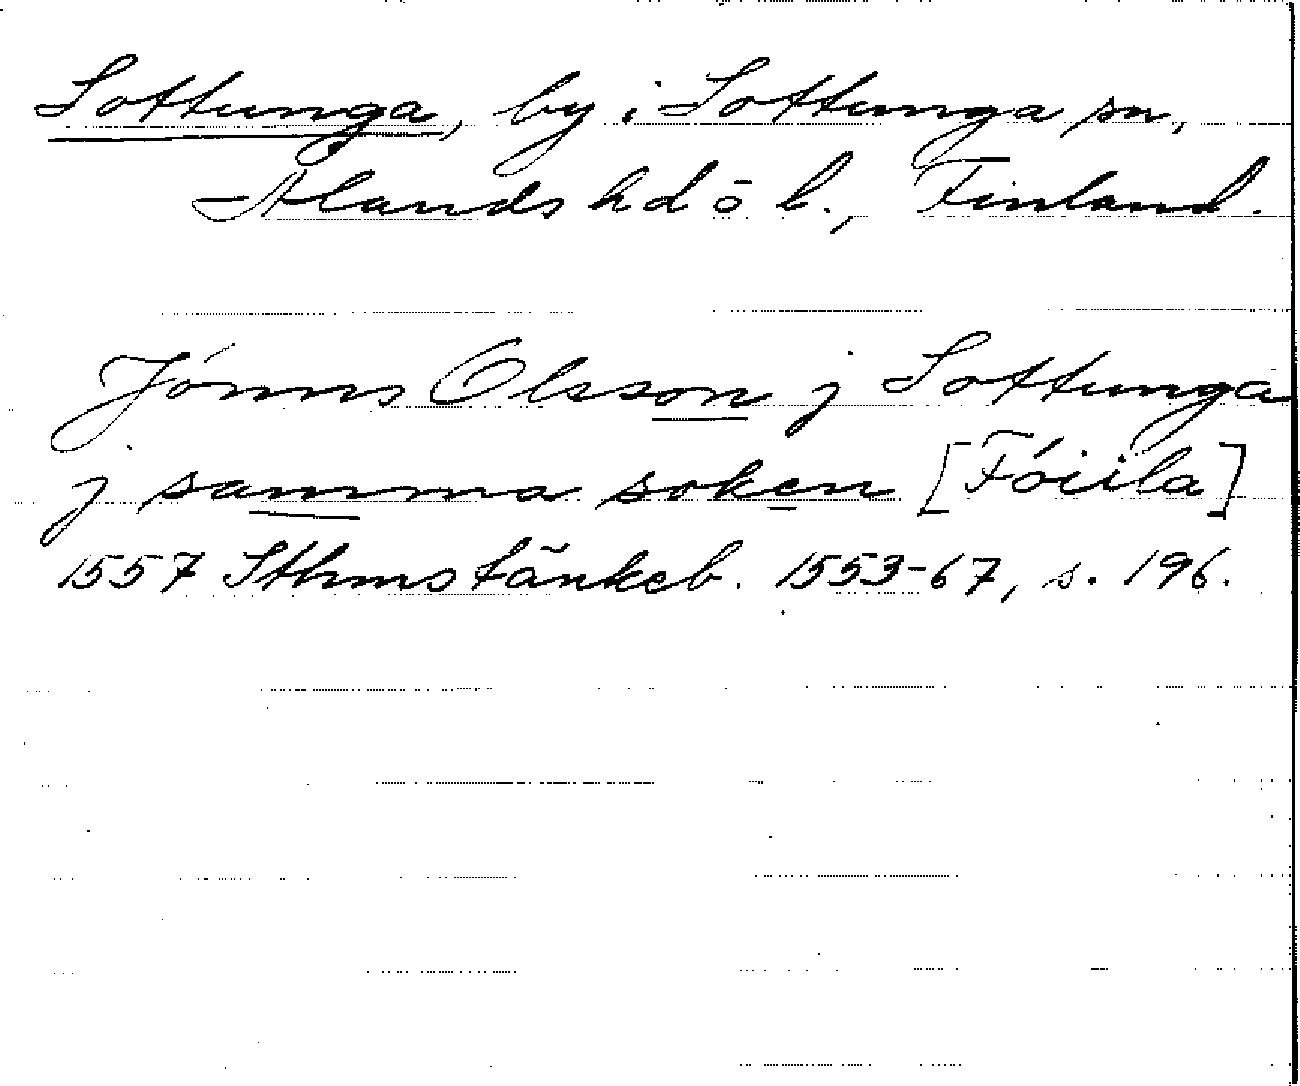 Sottunga, by i Sottunga sn,
Ålands hd ö l., Finland.
Jónns Olsson j Sottunga
j samma soken [Fóiila]
1557 Sthms tänkeb. 1553-67, s. 196.